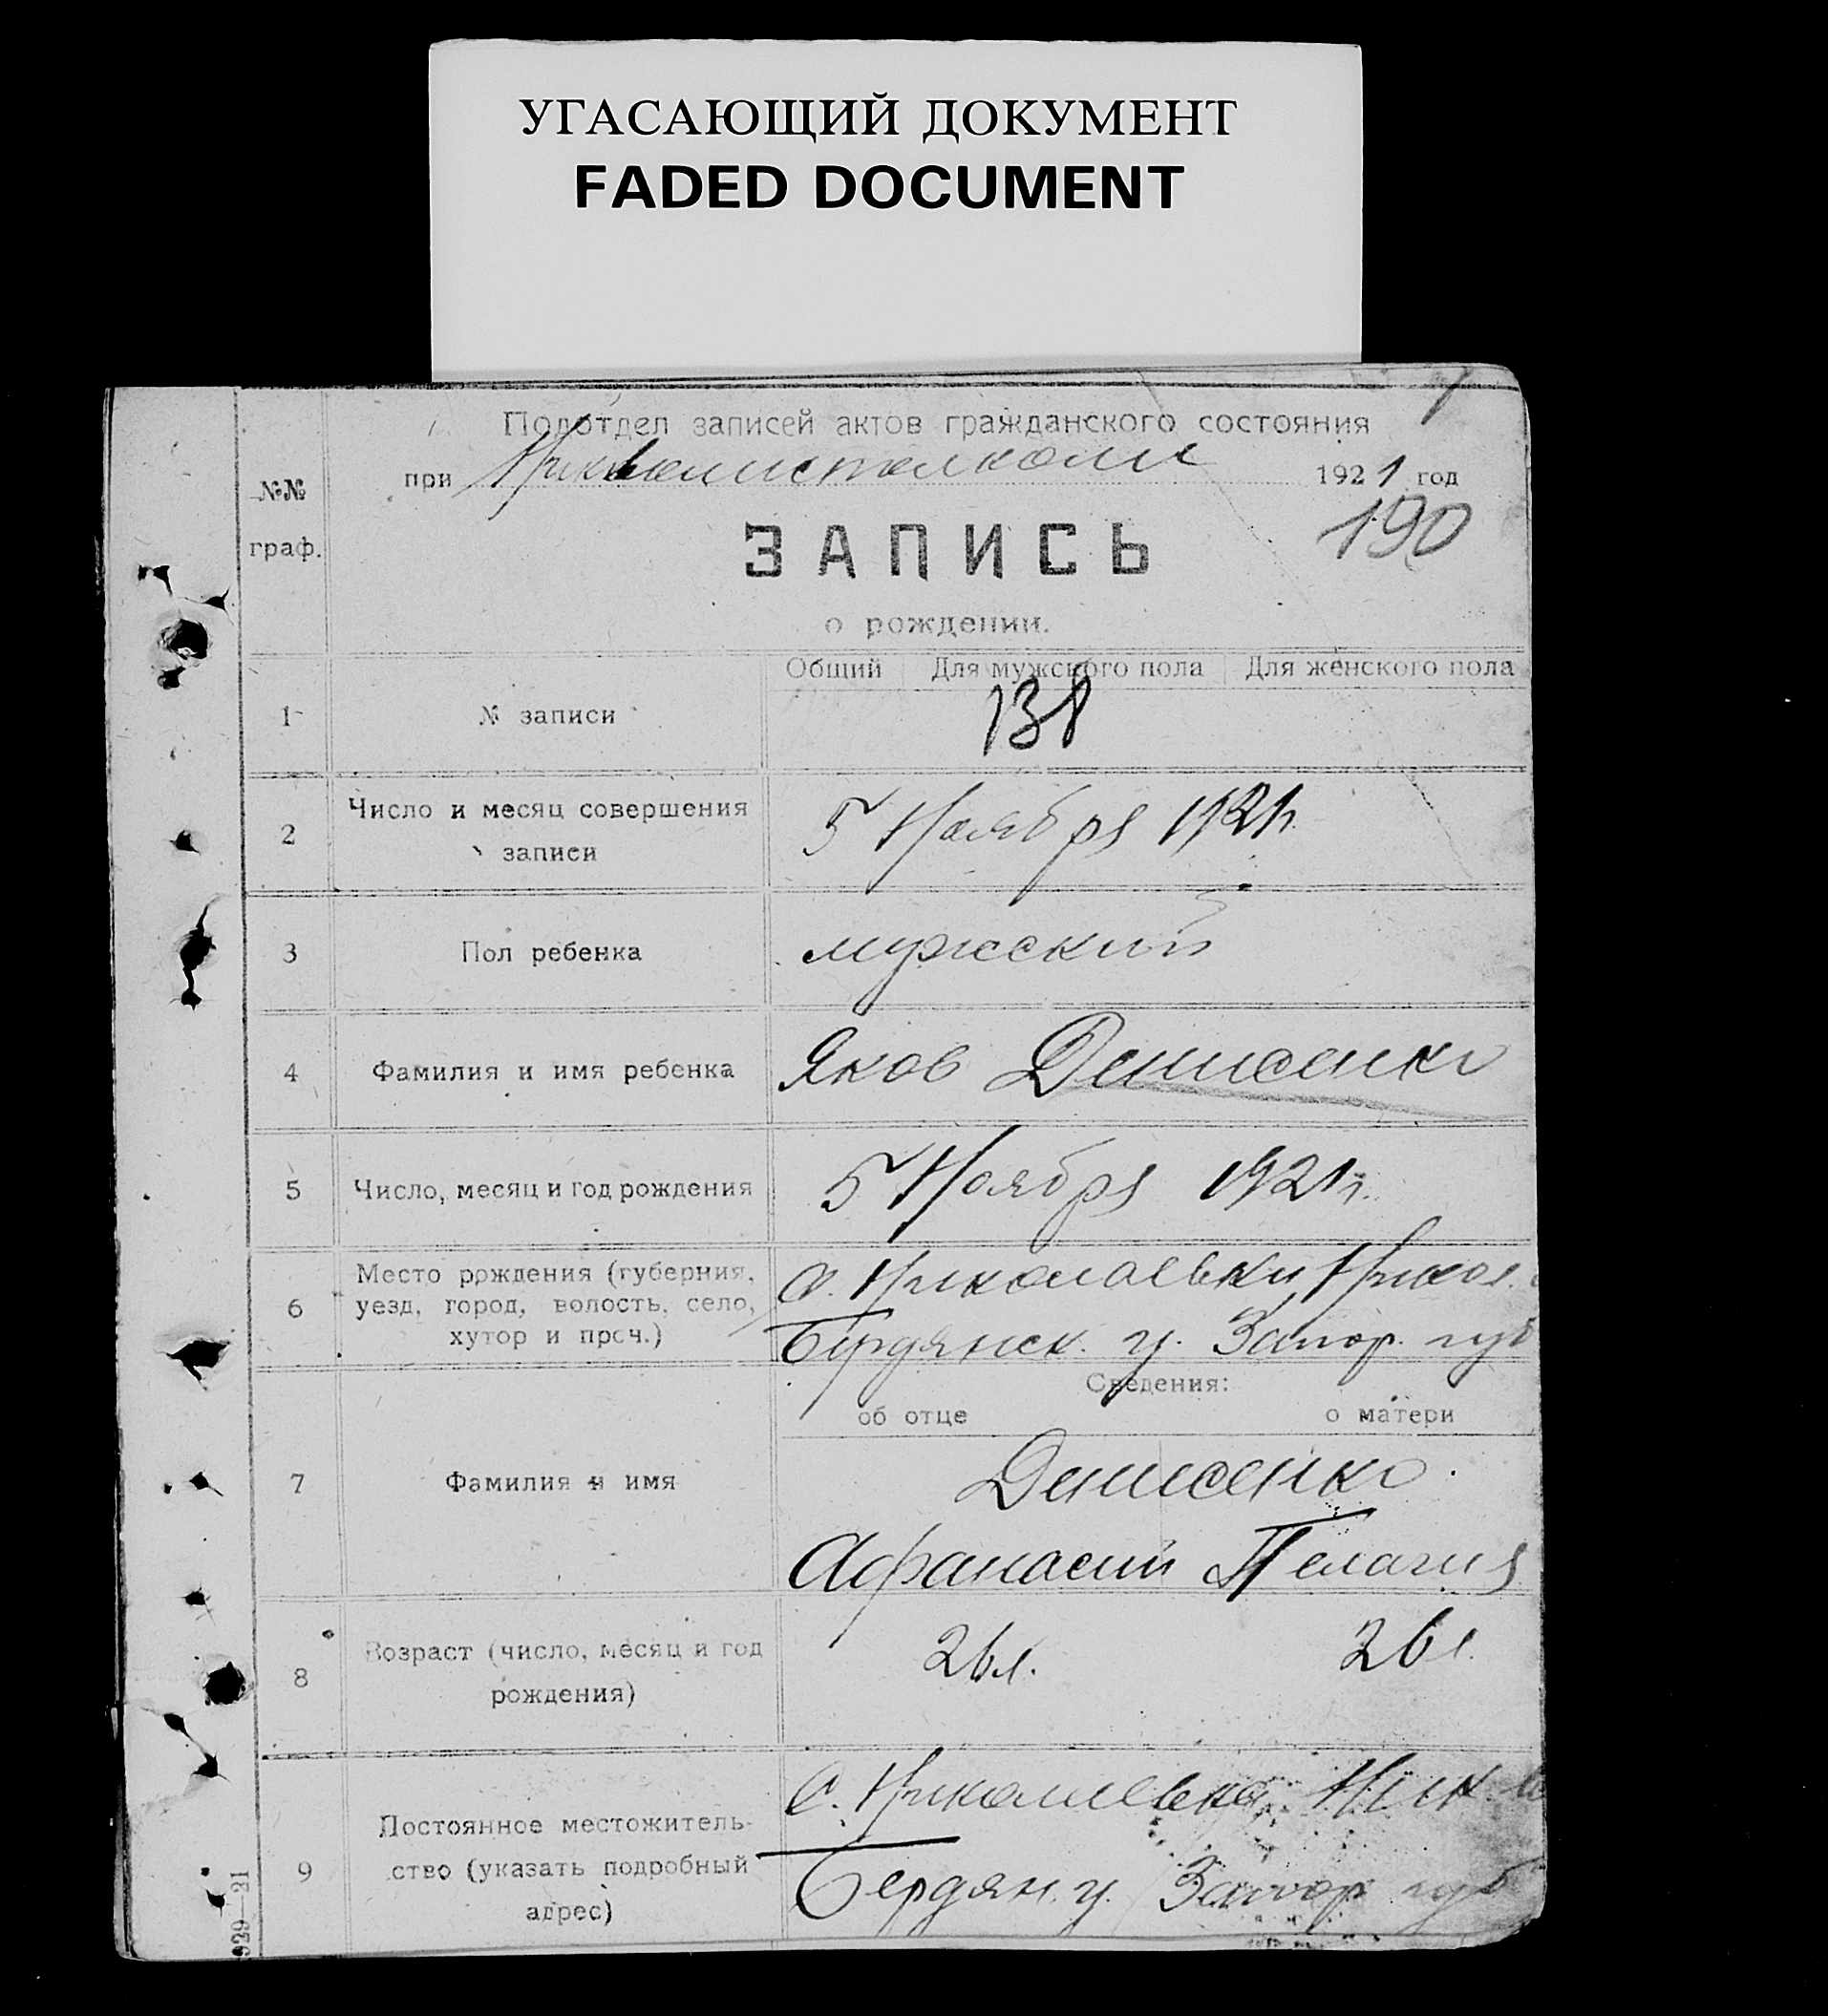 УГАСАЮЩИЙ ДОКУМЕНТ
FADED DOCUMENT
Подотдел записей актов гражданского состояния
при 1921 год
№№
граф.
190
ЗАПИСЬ
о рождении.
Общий Для мужского пола Для женского пола
1 № записи 138
2 Число и месяц совершения
записи
5 Ноября 1921г.
3 Пол ребенка мужеский
4 Фамилия и имя ребенка Яков Денисенко
5 Число, месяц и год рождения 5 Ноября 1921г.
6 Место рождения (губерния,
уезд, город, волость, село,
хутор и проч.)
с. Николаевки Никол.
Бердянск. у. Запор. губ
Сведения:
об отце о матери
7 Фамилия и имя
Денисенко
Афанасий Пелагия
8 Возраст (число, месяц и год
рождения)
26л. 26л.
9 Постоянное местожитель-
ство (указать подробный
адрес)
с. Николаевка Ник.
Бердян. у. Запор губ
929—21